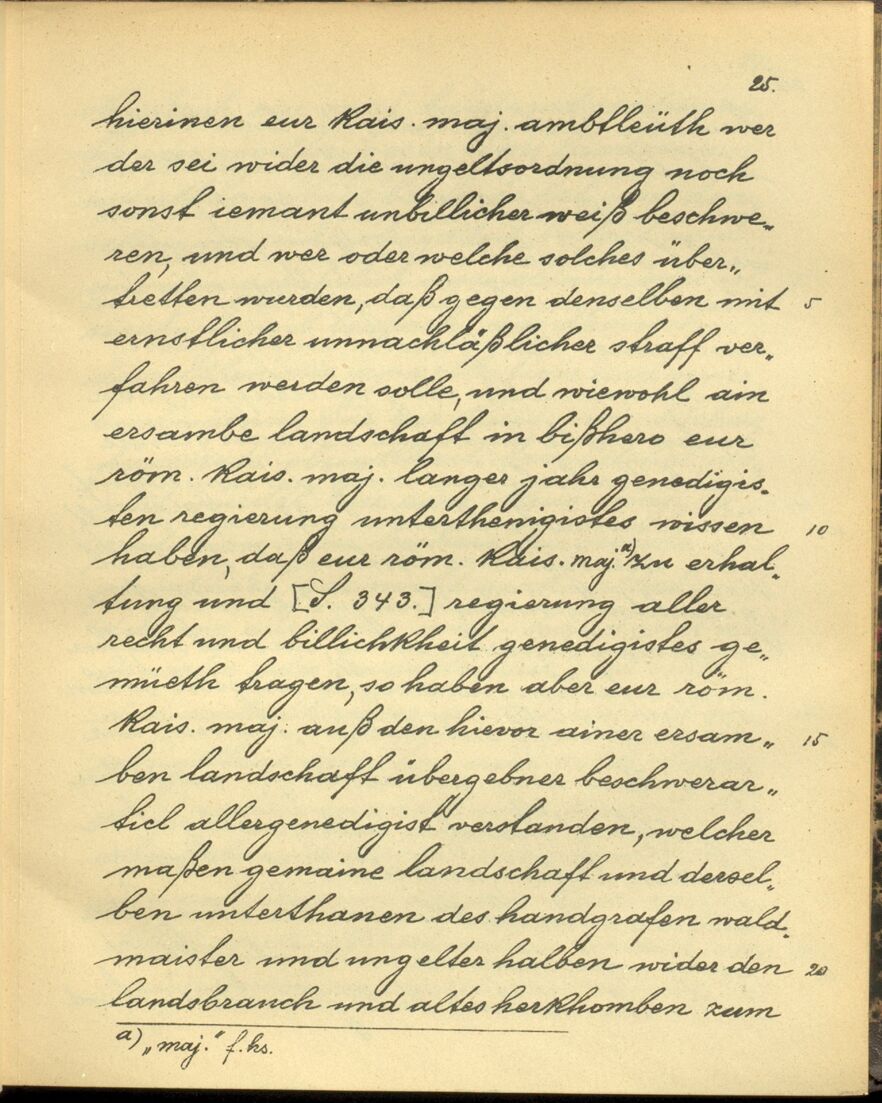 25.
hierinen eur kais. maj. ambtleüth wer
der sei wider die ungeltsordnung noch
sonst iemant unbillicher weiß beschwe„
ren, und wer oder welche solches über„
tretten wurden, daß gegen denselben mit 5
ernstlicher unnachläßlicher straff ver„
fahren werden solle, und wiewohl ain
ersambe landschaft in bißhero eur
röm. kais. maj. langer jahr genedigis„
ten regierung unterthenigistes wissen 10
haben, daß eur röm. kais. maj.a) zu erhal„
tung und [S. 343.] regierung aller
recht und billichkheit genedigistes ge„
müeth tragen, so haben aber eur röm.
kais. maj. auß den hievor ainer ersam„ 15
ben landschaft übergebner beschwerar„
ticl allergenedigist verstanden, welcher
maßen gemaine landschaft und dersel„
ben unterthanen des handgrafen wald„
maister und ungelter halben wider den 20
landsbrauch und altes herkhomben zum
a) „maj." f. hs.